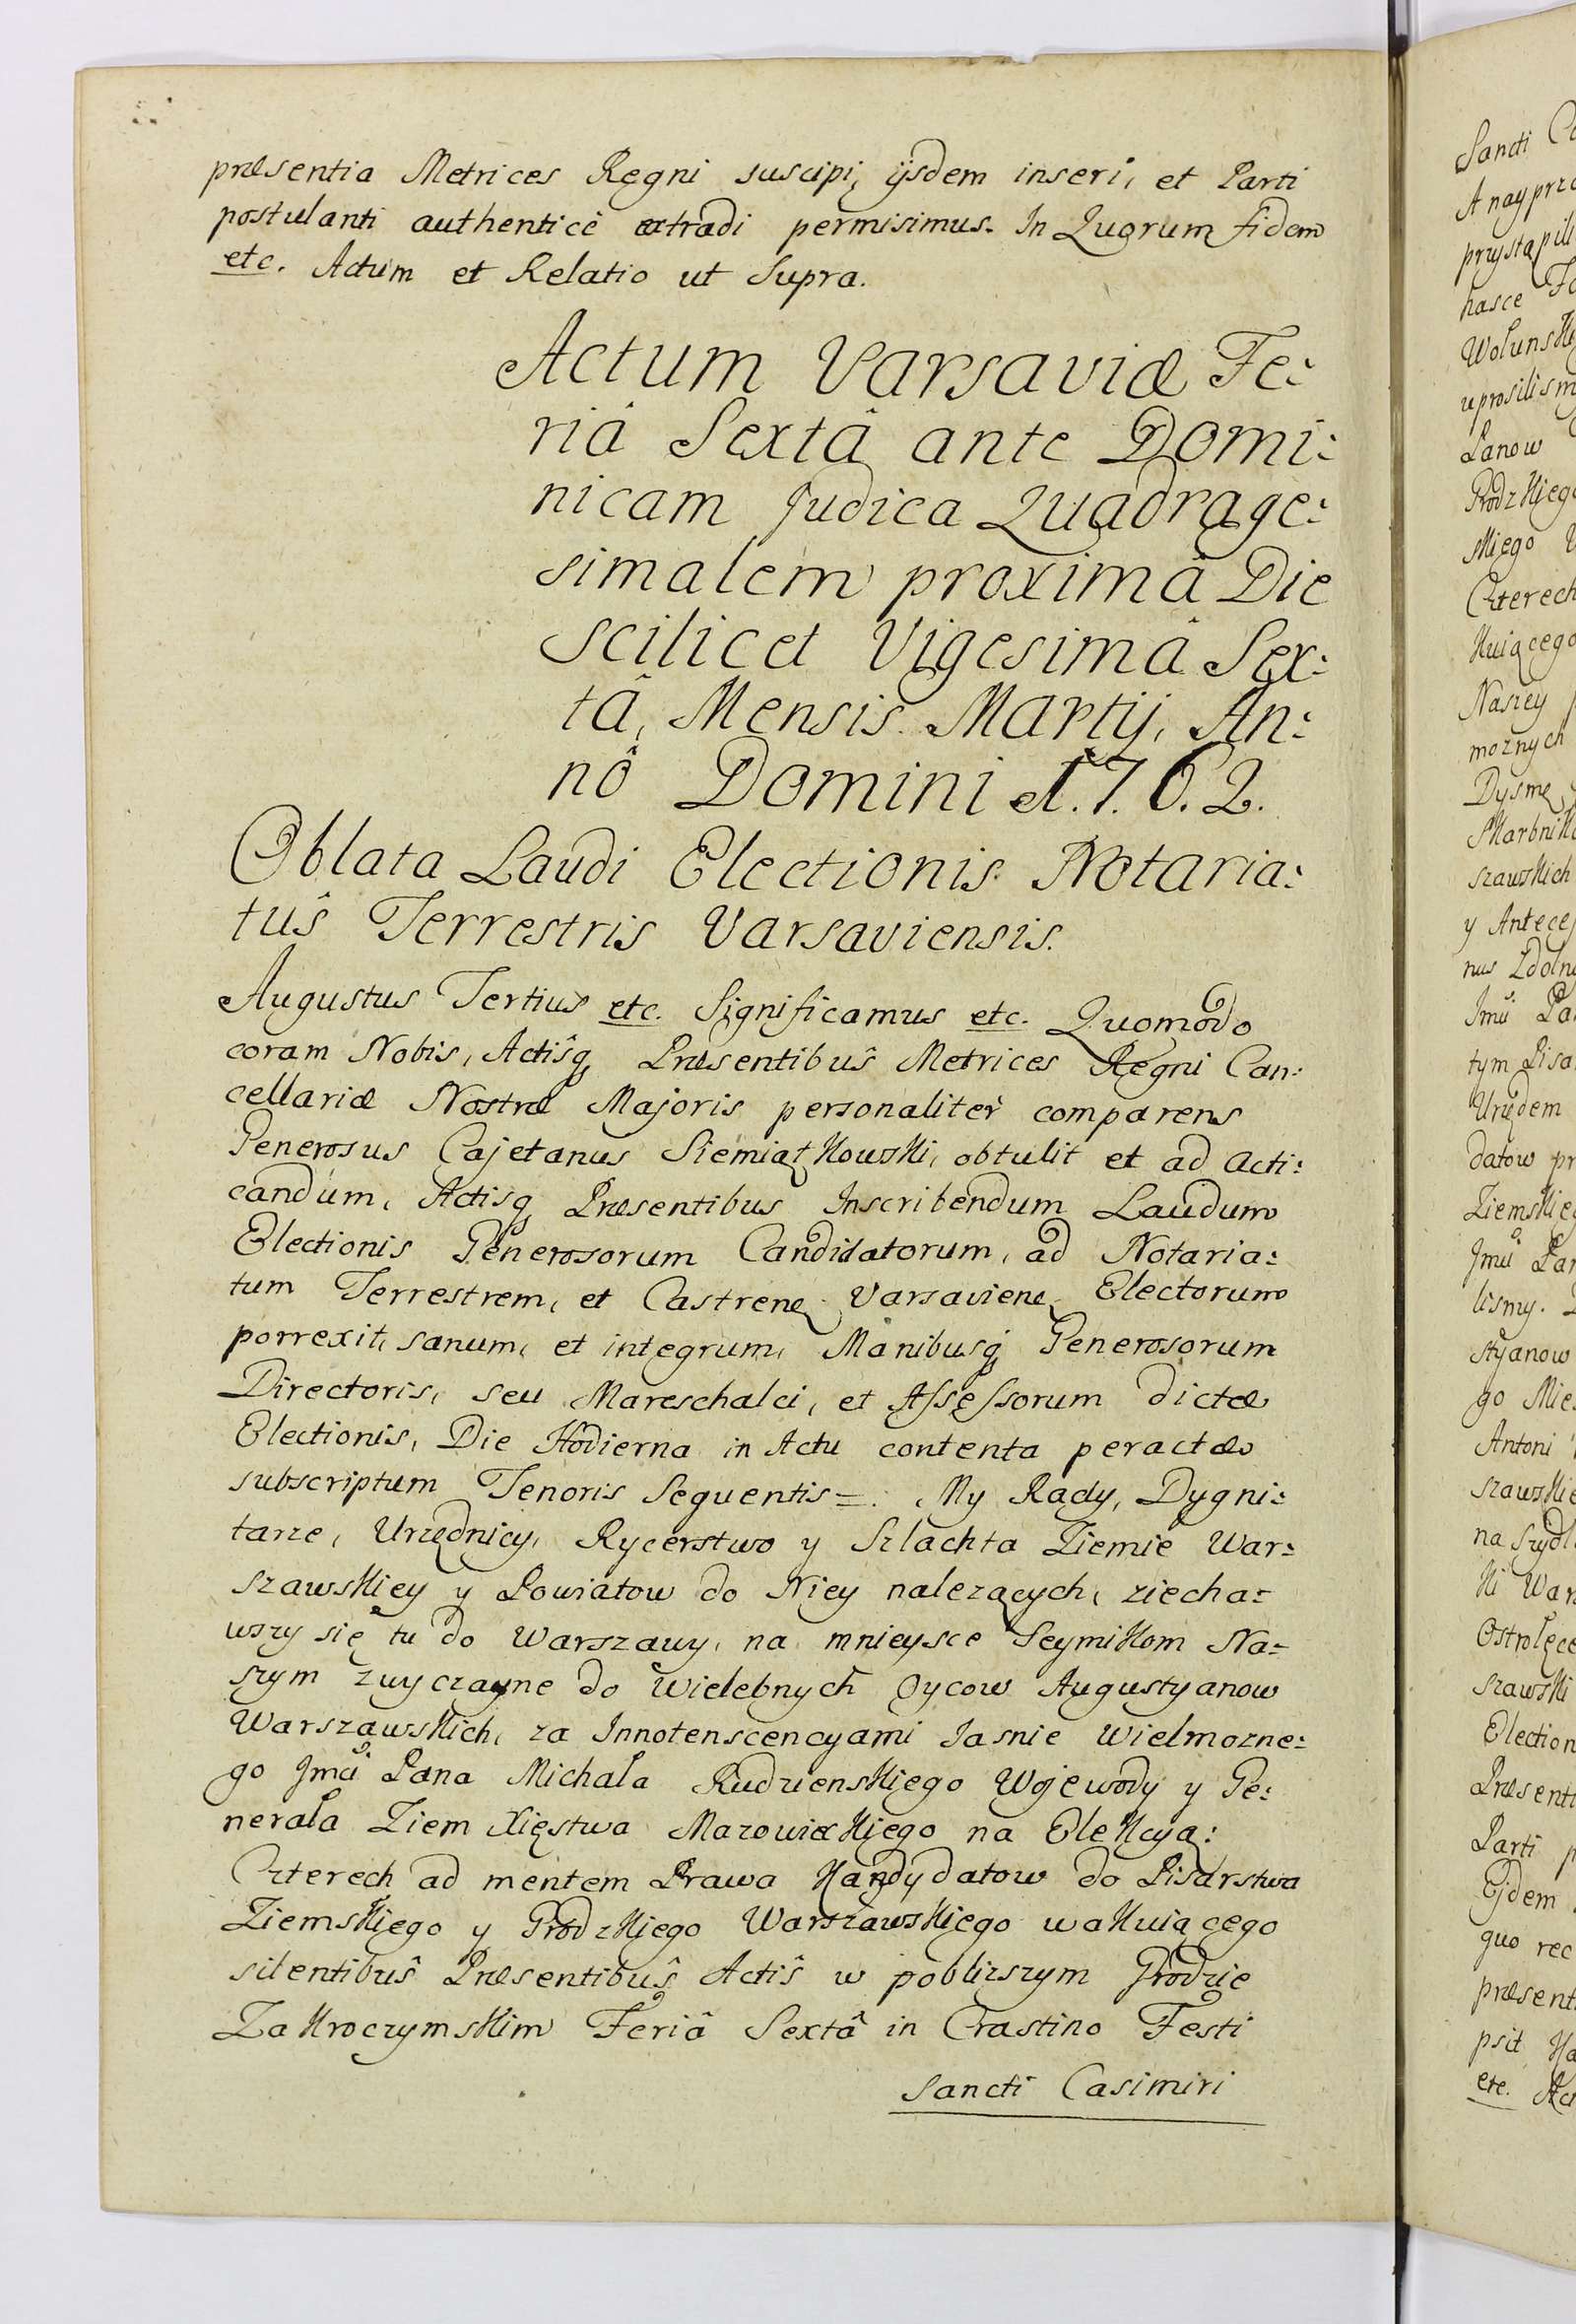 præsentia Metrices Regni suscipi, ijsdem inseri, et Parti
postulanti authenticè extradi permisimus. In Quorum fidem
etc. Actum et Relatio ut Supra.
Actum Varsaviæ Fe:
riâ Sextâ ante Domi:
nicam Judica Quadrage:
simalem proximâ Die
scilicet Vigesimâ Sex:
tâ, Mensis Martij, An:
nô Domini 1.7.6.2.
Oblata Laudi Electionis Notaria:
tûs Terrestris Varsaviensis.
Augustus Tertius etc. Significamus etc. Quomodo
coram Nobis, Actisq, Præsentibus Metrices Regni Can:
cellariæ Nostræ Majoris personaliter comparens
Generosus Cajetanus Siemiątkowski, obtulit et ad acti:
candum, Actisq Præsentibus Inscribendum Laudum
Electionis Generosorum Candidatorum, ad Notaria:
tum Terrestrem, et Castrenę Varsavienę Electorum
porrexit, sanum, et integrum, Manibusq Generosorum
Directoris, seu Mareschalci, et Assessorum dictæ
Electionis, Die Hodierna in Actu contenta peractæ
subscriptum Tenoris Sequentis =. My Rady, Dygni:
tarze, Urzędnicy, Rycerstwo y Szlachta Ziemie War:
szawskiey y Powiatow do Niey nalezących, ziecha:
wszy się tu do Warszawy, na mnieysce Seymikom Na:
szym zwyczayne do Wielebnych Oycow Augustyanow
Warszawskich, za Innotenscencyami Jasnie Wielmozne:
go Jmci Pana Michała Rudzienskiego Wojewody y Ge:
nerała Ziem Xięstwa Mazowieckiego na Elekcyą:
Czterech ad mentem Prawa Kandydatow do Pisarstwa
Ziemskiego y Grodzkiego Warszawskiego wakuiącego
silentibus Præsentibus Actis w poblizszym Grodzie
Zakroczymskim Feriâ Sextâ in Crastino Festi
Sancti Casimiri
Sancti
A nayprz
przystąpili
hasce
uprosilism
Panow
skiego
Czterech
kuiącego
Naszey
moznych
Dysmę
szawskich
y Anteces
Jmci Pa
tym Pisa
Urzędem
datow pr
Jmci Pan
lismy.
styanow
go Mie
Antoni
szawskie
ki War
Ostrolęce
szawski
Election
Præsent
Parti p
Ejdem
quo rec
præsent
psit
etc. Ac